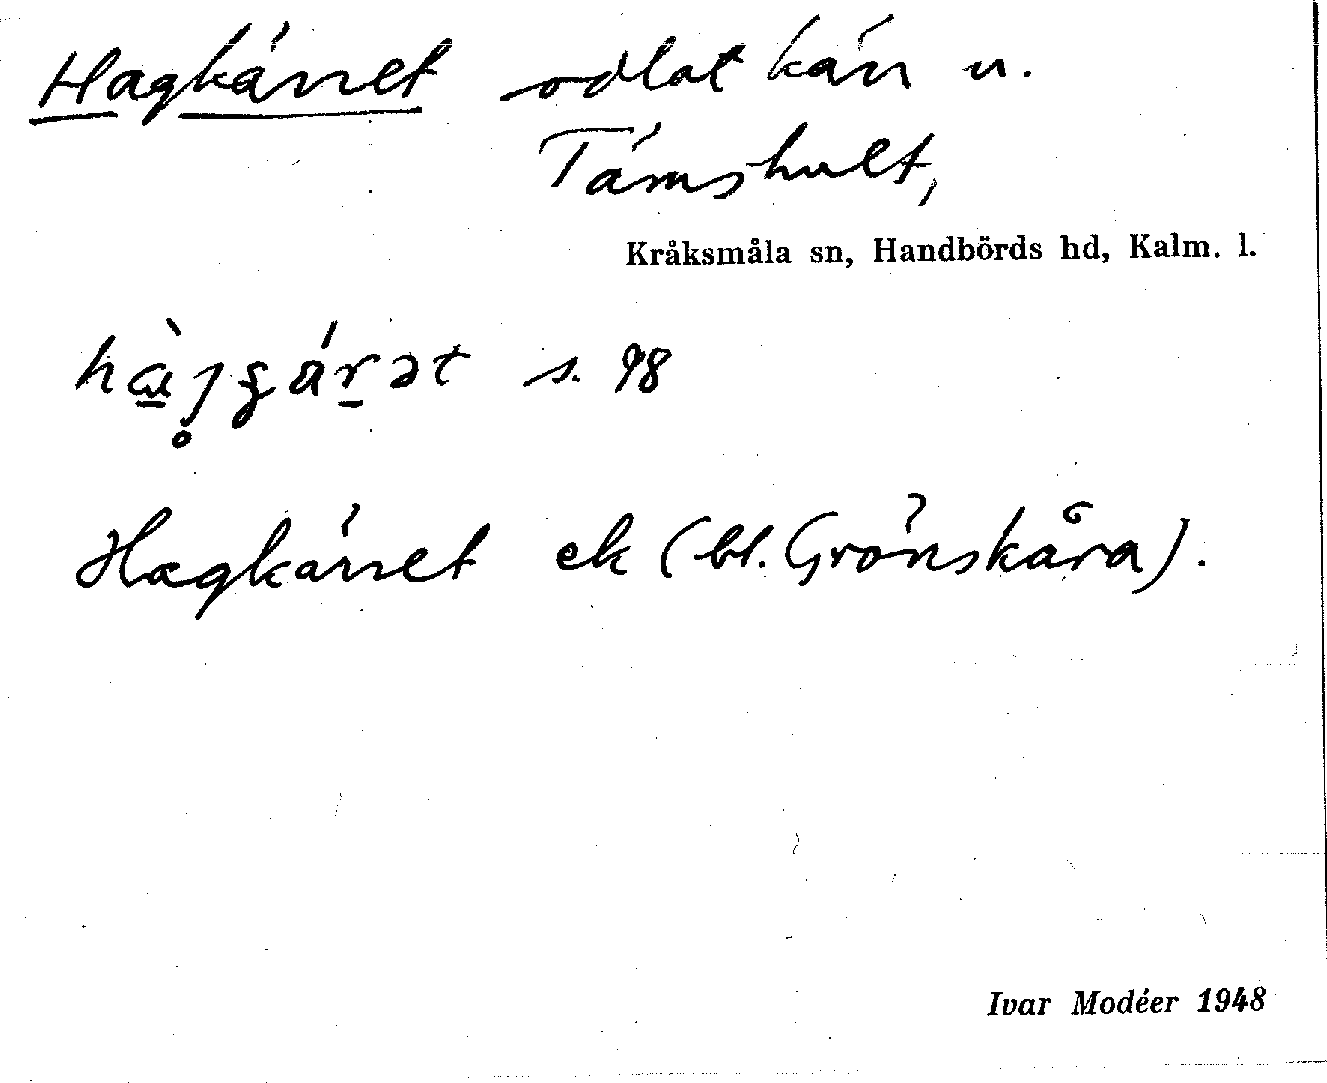 Hagkärret odlat kärr u.
Tämshult,
Kråksmåla sn, Handbörds hd, Kalm. l.
s. 98
Hagkärret ek (bl. Grönskåra).
Ivar Modéer 1948